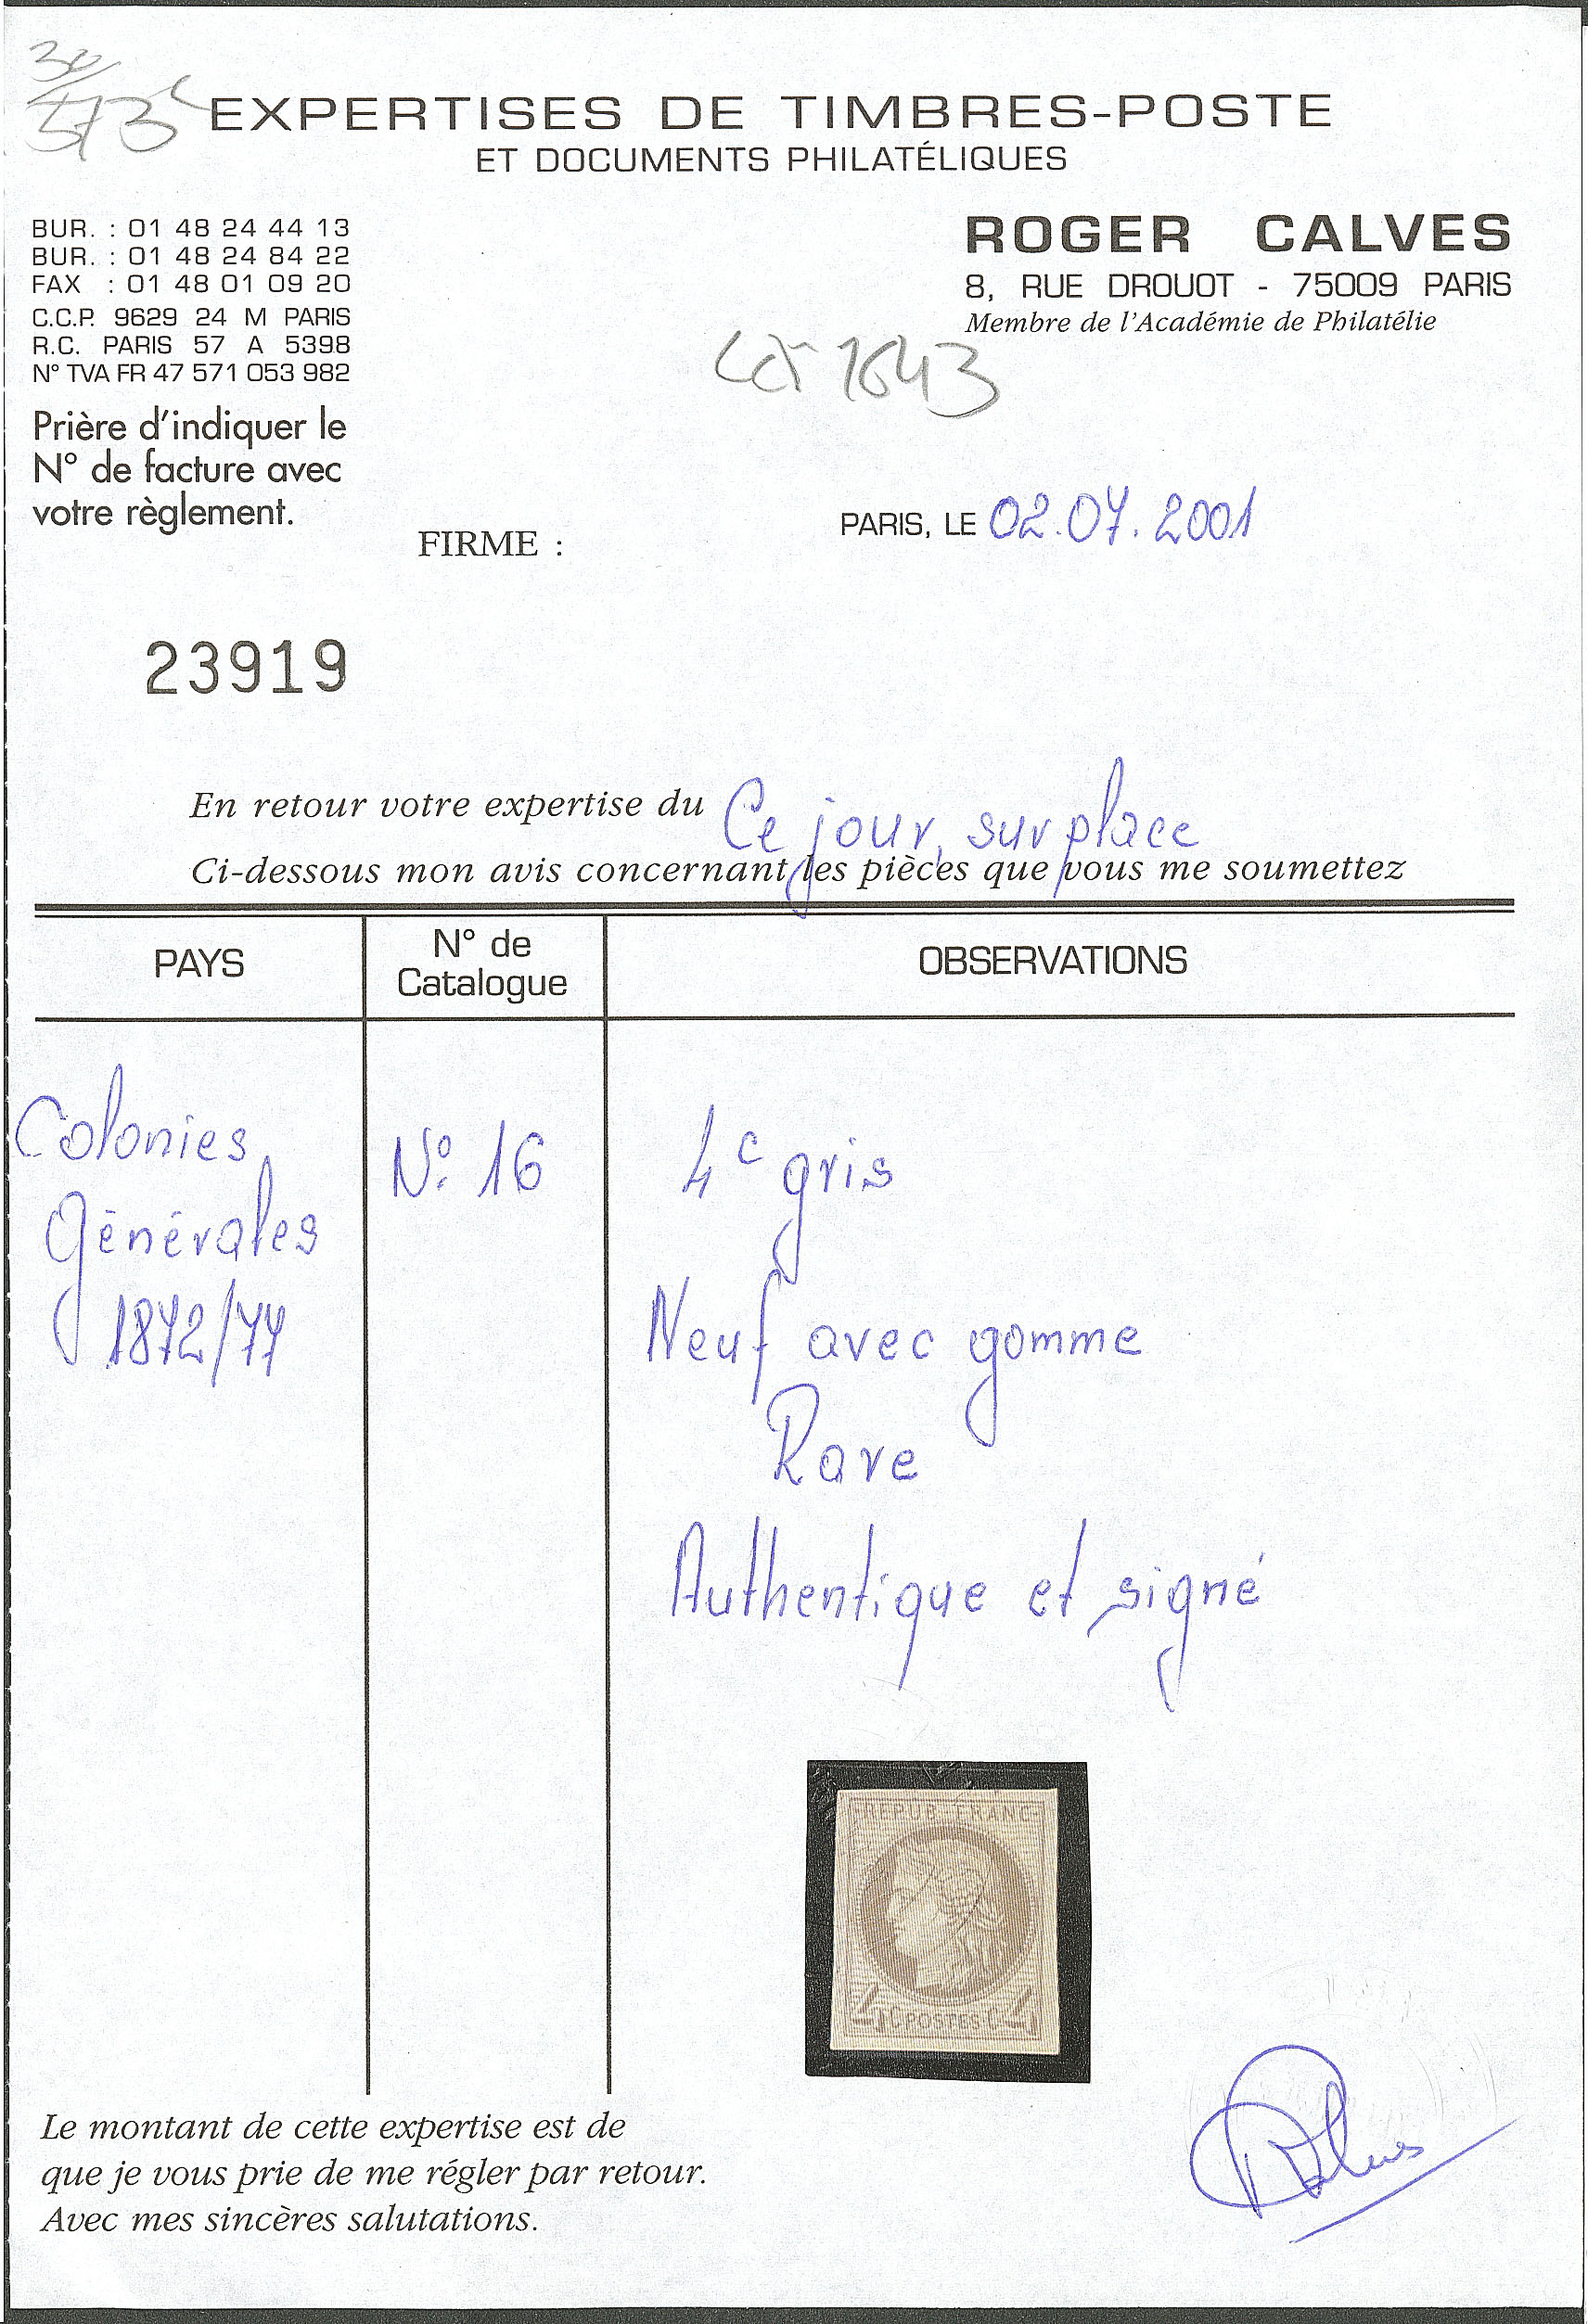 EXPERTISES DE TIMBRES-POSTE
ET DOCUMENTS PHILATÉLIQUES
BUR. : 01 48 24 44 13
BUR. : 01 48 24 84 22
FAX : 01 48 01 09 20
C.C.P. 9629 24 M PARIS
R.C. PARIS 57 A 5398
N° TVA FR 47 571 053 982
Prière d'indiquer le
N° de facture avec
votre règlement.
ROGER CALVES
8, RUE DROUOT - 75009 PARIS
Membre de l'Académie de Philatélie
1643
PARIS, LE 02.07.2001
FIRME :
23919
En retour votre expertise du Ce jour, sur place
Ci-dessous mon avis concernant les pièces que vous me soumettez
PAYS
N° de
Catalogue
OBSERVATIONS
Colonies
Générales
1872/77
N° 16
4c gris
Neuf avec gomme
Rare
Authentique et signé
REPUB FRANC
4 C POSTES C 4
Le montant de cette expertise est de
que je vous prie de me régler par retour.
Avec mes sincères salutations.